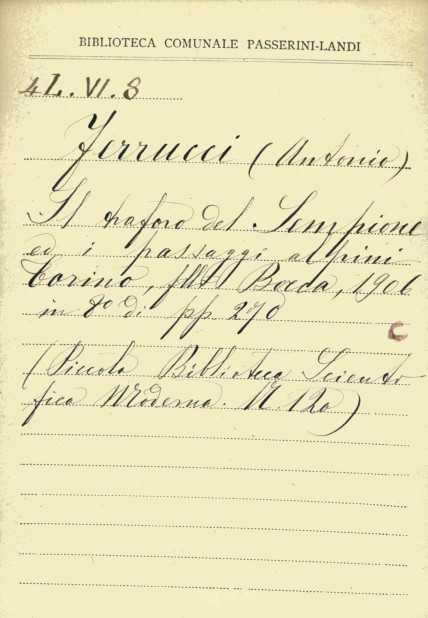 BIBLIOTECA COMUNALE PASSERINI-LANDI
4L.VI.8
Ferrucci (Antonio)
Il traforo del Sempione
ed i passaggi alpini
Torino, flli Bocca, 1906
in 8o di pp. 270
C
(Piccola Biblioteca Scienti
fica Moderna. N. 120)